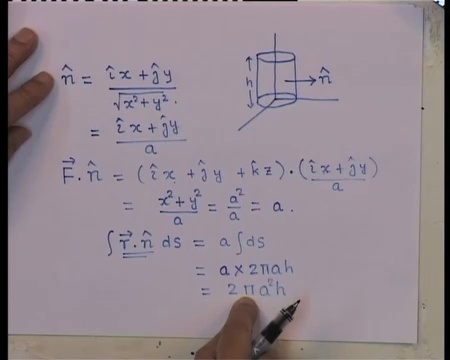 n̂ = (îx + ĵy) / √(x² + y²).
= (îx + ĵy) / a
h
n̂
F⃗ . n̂ = (îx + ĵy + k̂z) . (îx + ĵy) / a
= (x² + y²) / a = a² / a = a .
∫ r⃗ . n̂ ds = a ∫ ds
= a × 2πah
= 2πa²h